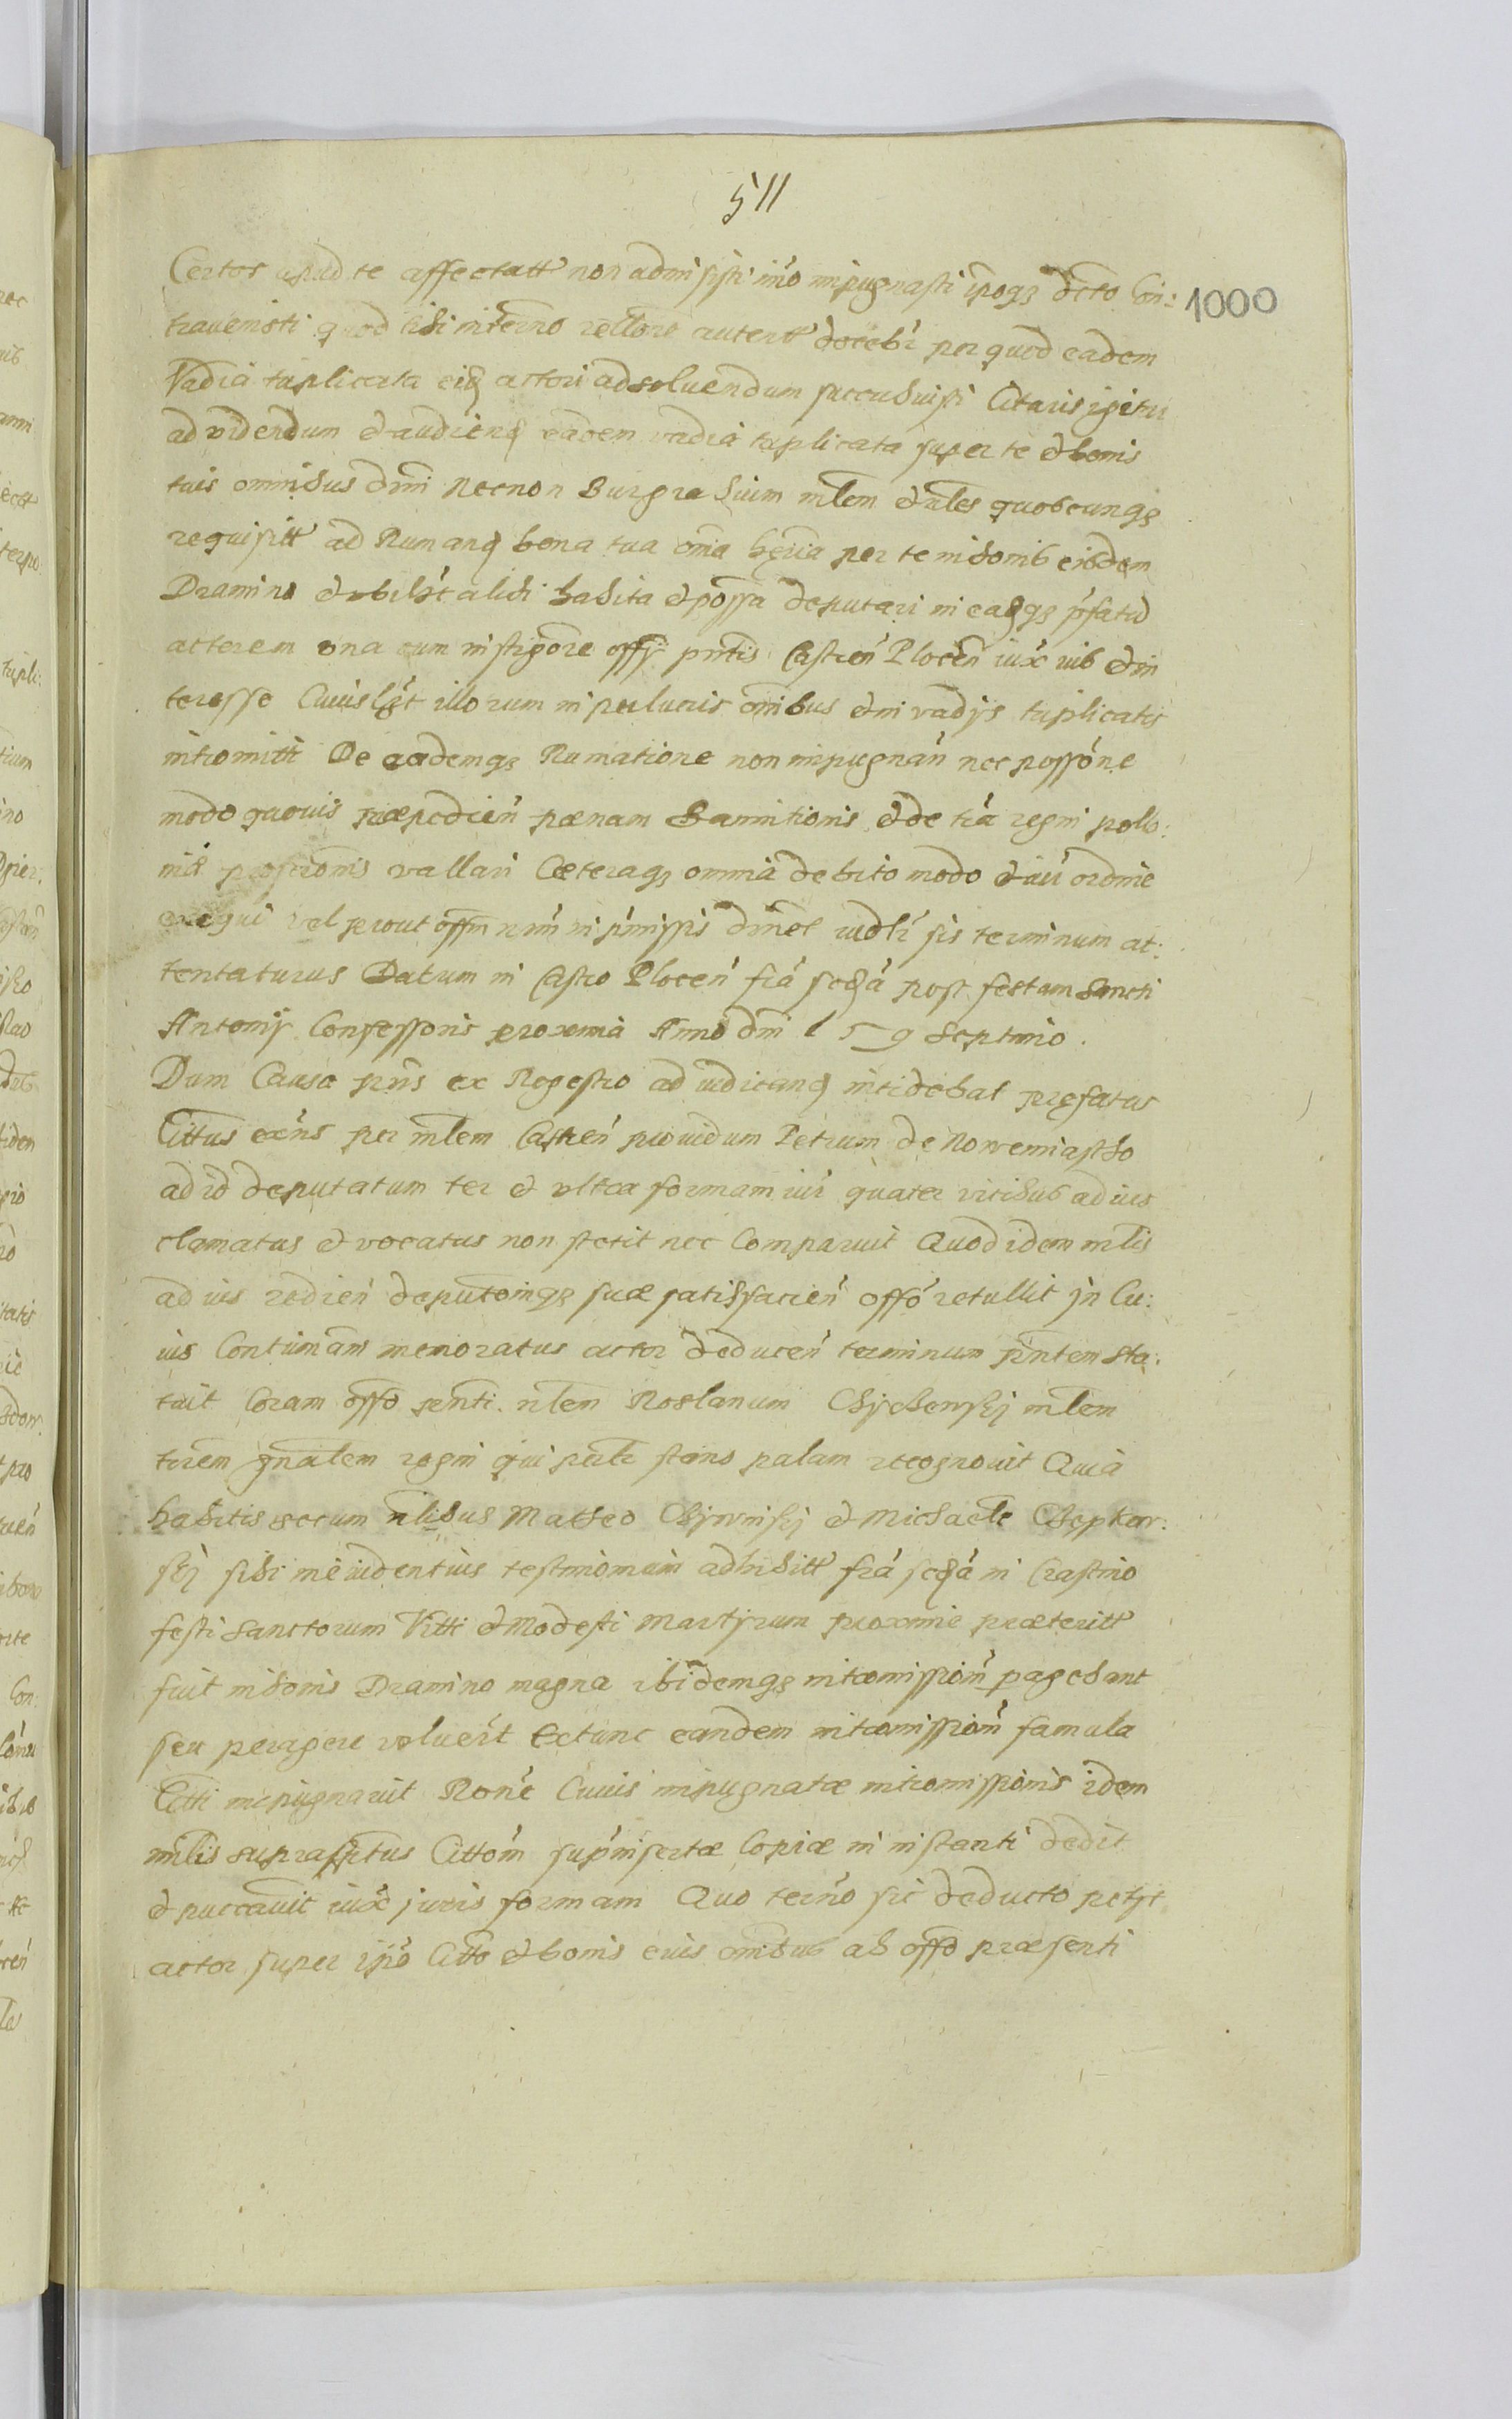 511
1000
Certos apud te affectatt non admisisti imo impugnasti ipoqz dicto Con:
travenisti quod tibi in termo rellõne autentt docebr per quod eadem
Vadia triplicata eidz actori ad soluendum succubuisti Citaris igitur
ad videndum et audiendz eadem vadia triplicata super te et bonis
tuis omnibus dmi Necnon Burgrabium mlem et nles quoscunqz
requisitt ad Rumandz bona tua omia hęria per te in bonis eisdem
Dramino et ubilibet alibi habita et possa deputari in easqz pfatũ
actorem una cum instigore offy pntis Castren Plocen iux vis et in
teresse Cuiuslibet illorum in perlucris omibus et in vadys triplicatis
intromitti De eademqz Rumatione non impugnan nec possõne
modo quouis præpedien pænam Bannitionis et de tra regni pollo:
niæ proscrõnis vallari Cæteraqz omnia debito modo et iur ordine
exequi vel prout offm nrm in pmissis dmet iudbr sis terminum at:
tentaturus Datum in Castro Plocen fra scda post festum Sancti
Antonij Confessoris proxima Anno dmi 159 Septimo.
Dum Causa pns ex Regestro ad iudicandz incidebat pręfatus
Cittus exns per mlem Castren prouidum Petrum de Nowemiastho
ad id deputatum ter et ultra formam iur quater vicibus ad ius
clamatus et vocatus non stetit nec Comparuit Quod idem mlis
ad ius redien deputoniqz suæ satisfacien offo retullit Jn Cu:
ius Contumam memoratus actor deducen terminum pntem sta:
tuit Coram offo pnti nlem Roslanum Chychewskj mlem
trem gnalem regni qui perlr stans palam recognouit Quia
habitis secum nlibus Matheo Chywinskj et Michaele Chępkow:
skj sibi in euidentius testimonium adhibitt fra scda in Crastino
festi Sanctorum Vitti et Modesti Martyrum proxime præteritt
fuit in bonis Dramino magna ibidemqz intromissiom pagebant
seu peragere voluert Extunc eandem intromissiom famula
Citti inpugnavit Rone Cuius inpugnatæ intromissionis idem
mlis suprascritus Cittom sup insertæ Copiæ in instanti dedit
et puccauit iux juris formam Quo termo sic deducto petyt
actor super ipo Citto et bonis eius omibus ab offo præsenti